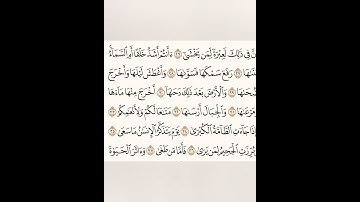 نَّ فِى ذَٰلِكَ لَعِبْرَةً لِّمَن يَخْشَىٰٓ ٢٦ ءَأَنتُمْ أَشَدُّ خَلْقًا أَمِ ٱلسَّمَآءُ
نَىٰهَا ٢٧ رَفَعَ سَمْكَهَا فَسَوَّىٰهَا ٢٨ وَأَغْطَشَ لَيْلَهَا وَأَخْرَجَ
ضُحَىٰهَا ٢٩ وَٱلْأَرْضَ بَعْدَ ذَٰلِكَ دَحَىٰهَآ ٣٠ أَخْرَجَ مِنْهَا مَآءَهَا
رْعَىٰهَا ٣١ وَٱلْجِبَالَ أَرْسَىٰهَا ٣٢ مَتَٰعًا لَّكُمْ وَلِأَنْعَٰمِكُمْ ٣٣
ذَا جَآءَتِ ٱلطَّآمَّةُ ٱلْكُبْرَىٰ ٣٤ يَوْمَ يَتَذَكَّرُ ٱلْإِنسَٰنُ مَا سَعَىٰ ٣٥
رِّزَتِ ٱلْجَحِيمُ لِمَن يَرَىٰ ٣٦ فَأَمَّا مَن طَغَىٰ ٣٧ وَءَاثَرَ ٱلْحَيَوٰةَ